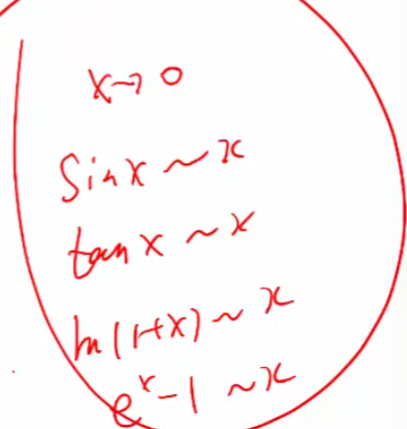 x→0
sinx ~ x
tanx ~ x
ln(1+x) ~ x
eˣ-1 ~ x